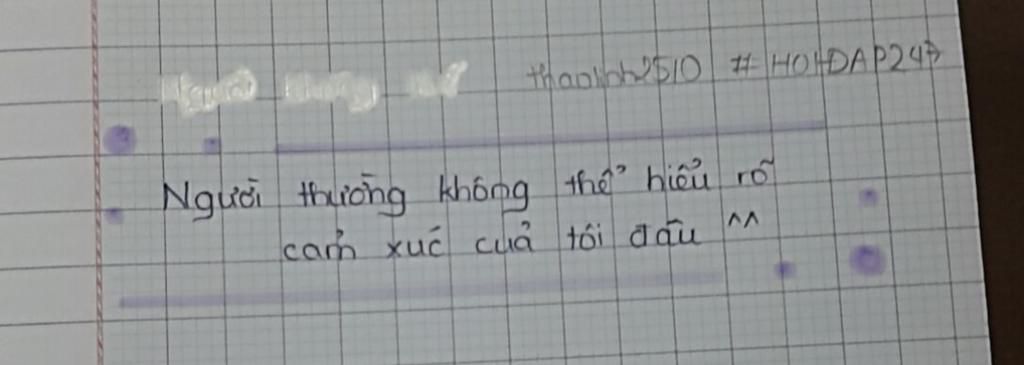 thaolinh2510 # HOIDAP247
Người thường không thể hiểu rõ
cảm xúc của tôi đâu ^^